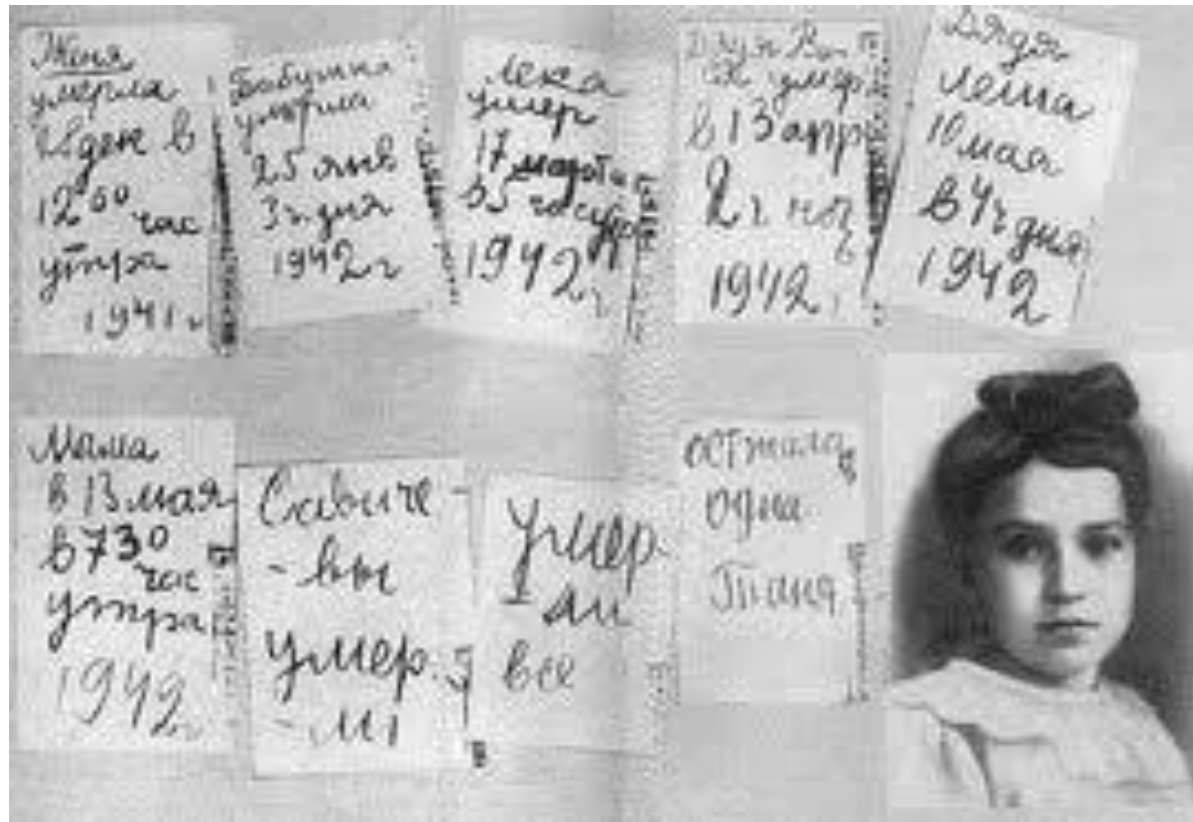 Женя
умерла
28 ден в
12 00 час
утра
1941 г
Бабушка
умерла
25 янв
3ч. дня
1942 г
Лека
умер
17 марта
в 5 час утр
1942 г
Дядя Ва
ся умер
в 13 апр
2 ч ноч
ь
1942 г
Дядя
Леша
10 мая
в 4ч дня
1942
Мама
в 13 мая
в 730
час
утра
1942 г
Савиче
- вы
умер.
- ли
Умер
- ли
все
осталась
одна
Таня